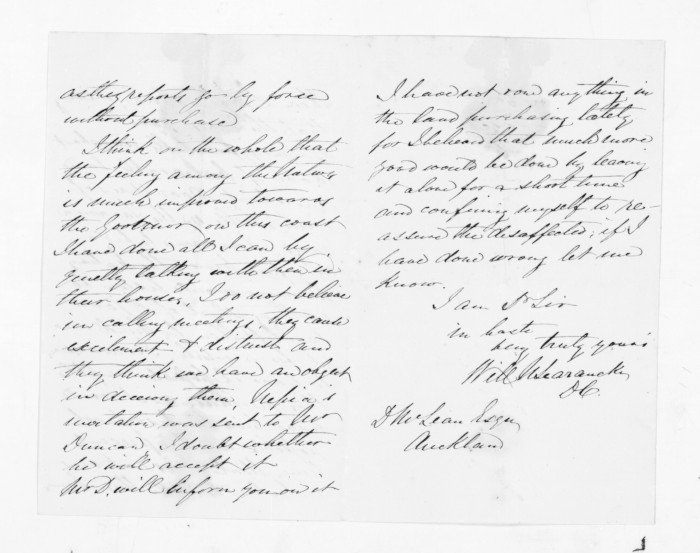 as the reports go by force
without purchase
I think on the whole that
the feeling among the Natives
is much improved towards
the Governor on this coast
I have done all I can by
quietly talking with them in
their houses, I do not believe
in calling meetings, they cause
excitement & distrust and
they think we have an object
in deceiving them, Nepia's
invitation was sent to Mr
Duncan, I doubt whether
he will accept it
Mr D. will inform you on it
I have not done anything in
the land purchasing lately
for I heard that much more
good would be done by leaving
it alone for a short time
and confining myself to re-
assure the disaffected; if I
have done wrong let me
know.
I am Dr Sir
in haste
very truly yours
Will N Searancke
D.C.
D McLean Esqr
Auckland